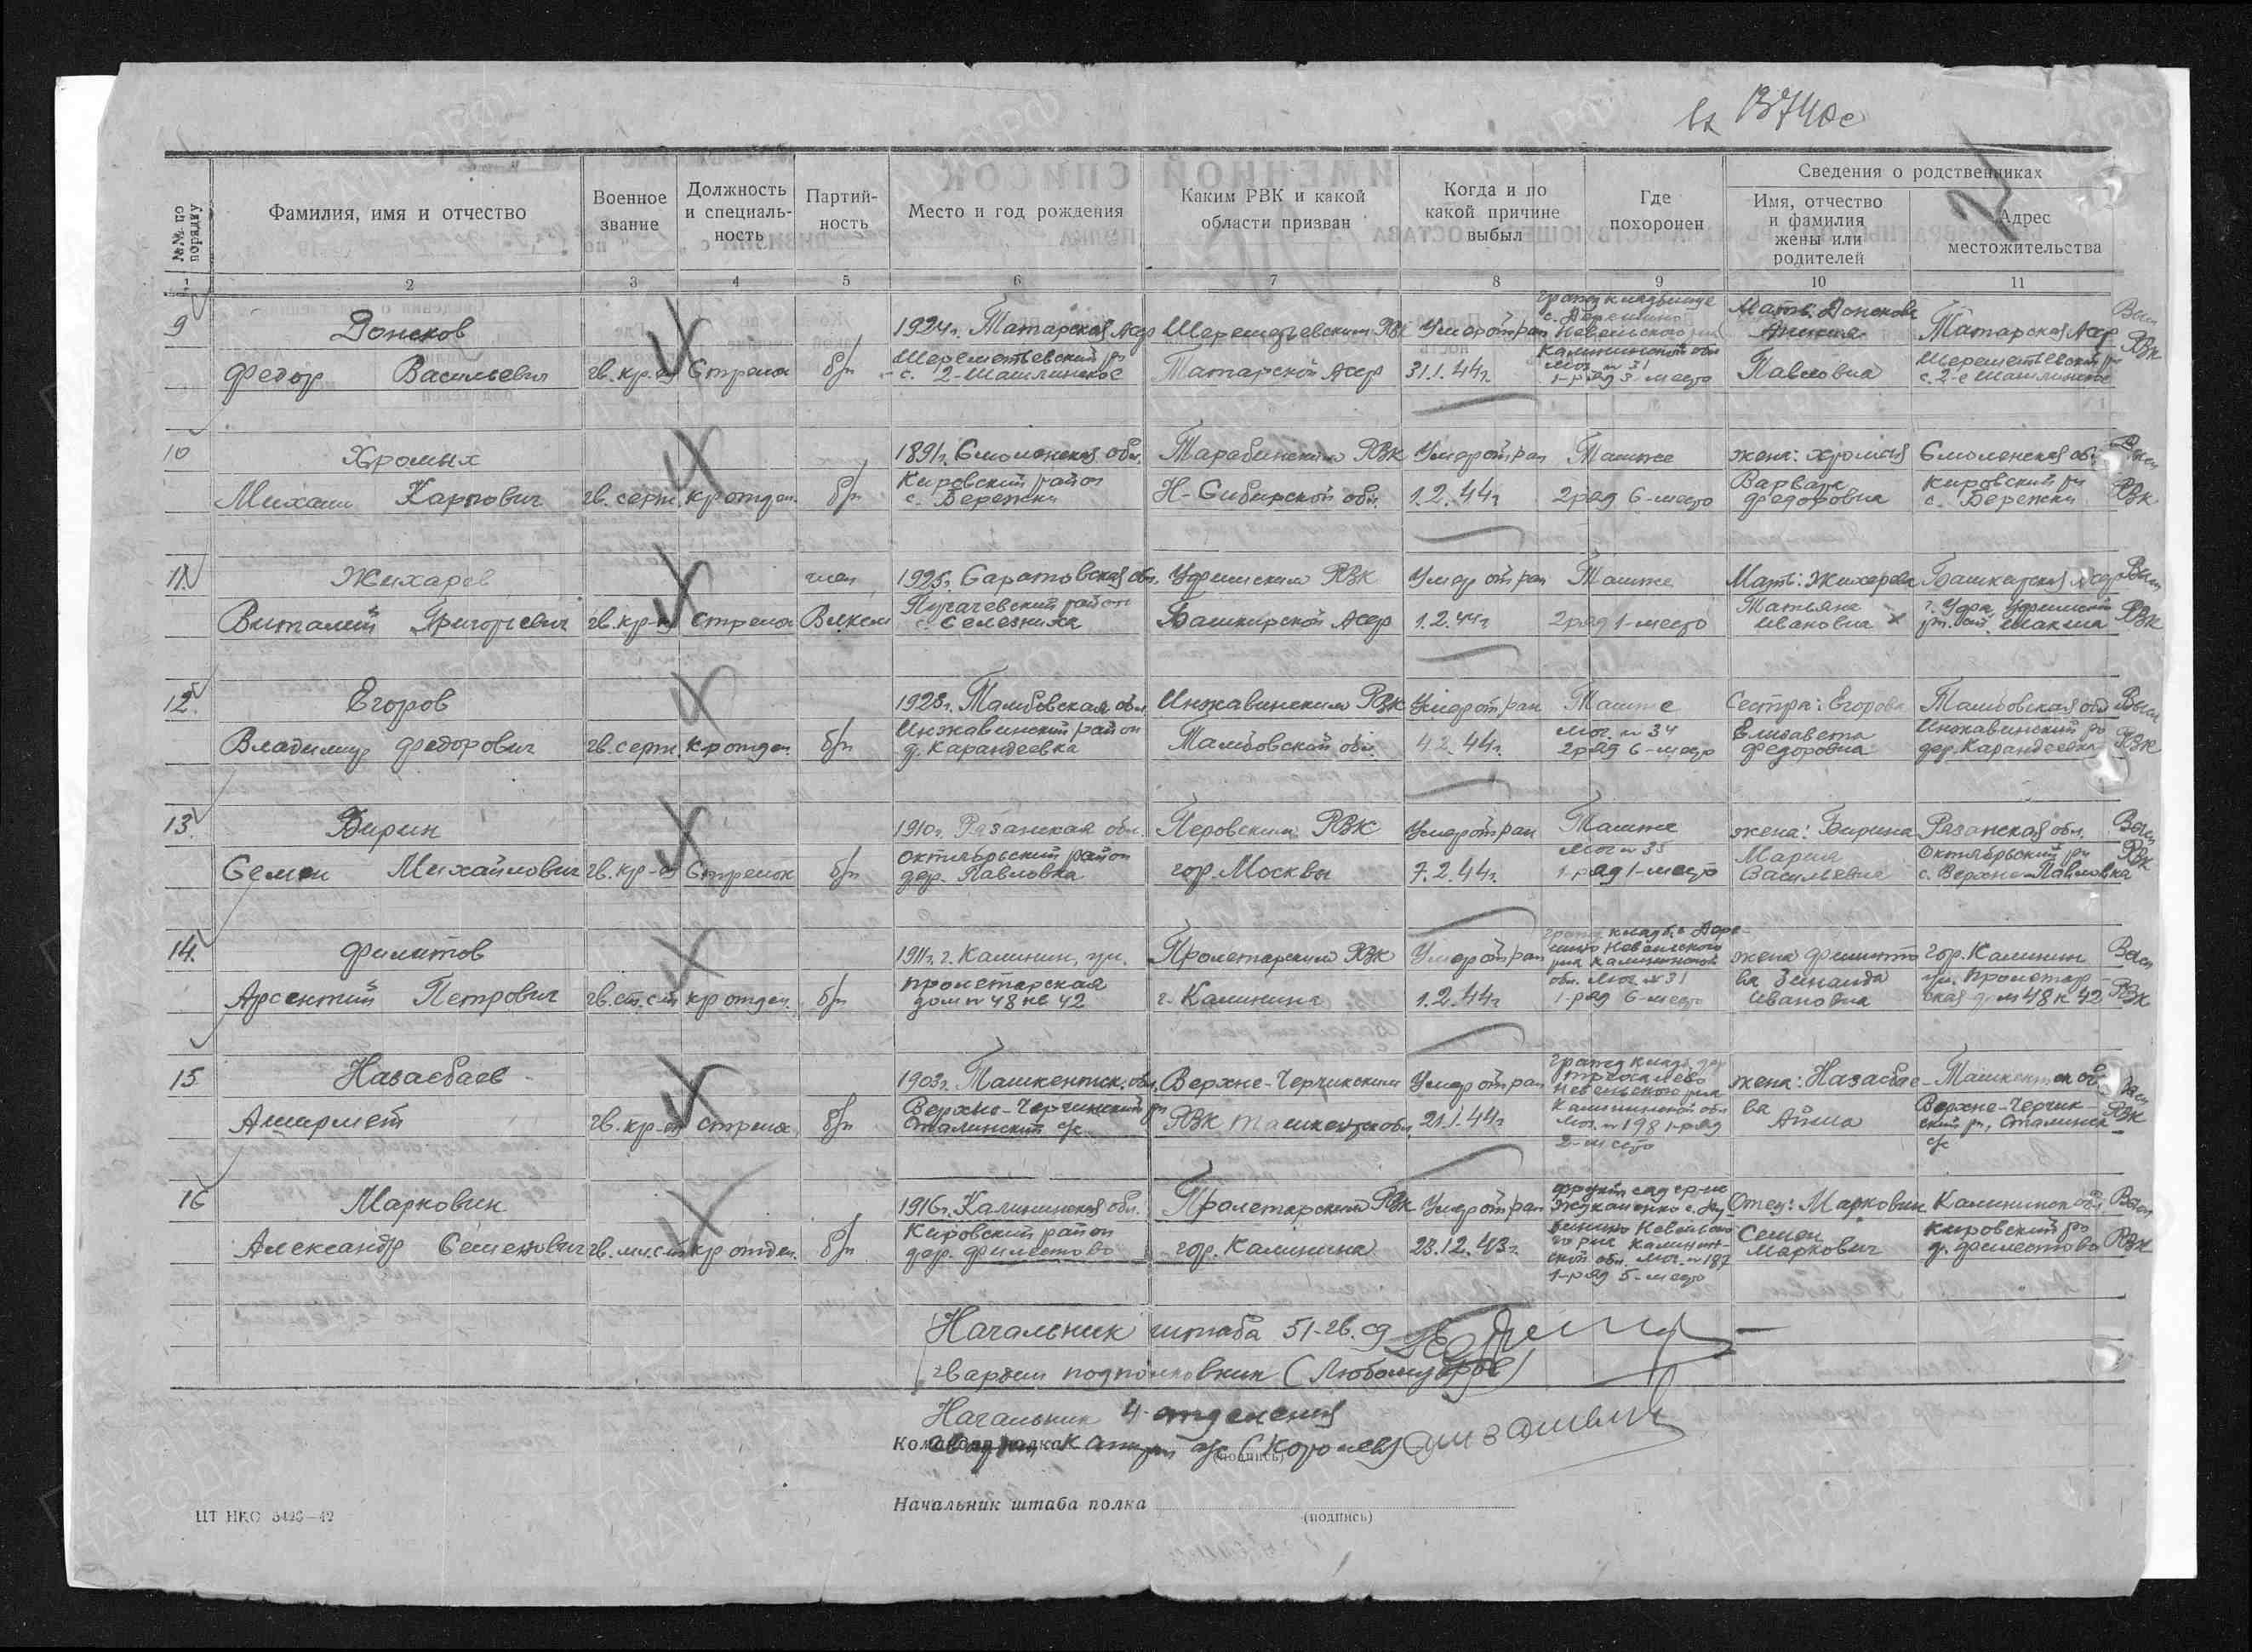 вх 13740с
№№ по порядку
Фамилия, имя и отчество
Военное звание
Должность и специаль-ность
Партий-ность
Место и год рождения
Каким РВК и какой области призван
Когда и по какой причине выбыл
Где похоронен
Сведения о родственниках
Имя, отчество и фамилия жены или родителей
Адрес местожительства
1 2 3 4 5 6 7 8 9 10 11
9
Донсков
Федор Васильевич
гв. кр-ец
Стрелок
б/п
1924г. Татарская Асср
Шереметьевский р-н
с. 2-Шашлинское
Шереметьевским РВК
Татарской Асср
Умер от ран
31.1.44г.
гражд кладбище
с. Дерешино
Невельского р-на
Калининской обл
Мог. № 31
1-ряд 3-место
Мать: Донскова
Павловна
Татарская Асср
Шереметьевский р-н
с. 2-е Шашлинское
РВК
10
Хромых
Михаил Карпович
гв. серж.
кр отдел.
б/п
1891г. Смоленская обл.
Кировский район
с. Бережки
Барабинским РВК
Н-Сибирской обл.
Умер от ран
1.2.44г
Там же
2 ряд 6-место
жена: Хромых
Варвара
Федоровна
Смоленская обл
Кировский рн
с. Бережки
РВК
11
Жихарев
Виталий Григорьевич
гв. кр-ец
Стрелок
член
Влксм
1925г. Саратовская обл.
Пугачевский район
с. Селезниха
Уфимским РВК
Башкирской Асср
Умер от ран
1.2.44г
Там же
2 ряд 1-место
Мать: Жихарева
Татьяна
Ивановна
Башкирская Асср
г. Уфа, Уфимский
рн. ст. Шакша
РВК
12.
Егоров
Владимир Федорович
гв. серж.
кр отдел.
б/п
1923г. Тамбовская обл.
Инжавинский район
д. Карандеевка
Инжавинским РВК
Тамбовской обл.
Умер от ран
4.2.44г.
Там же
Мог. № 34
2 ряд 6-место
Сестра: Егорова
Елизавета
Федоровна
Тамбовская обл
Инжавинский р-н
дер. Карандеевка
РВК
13.
Бирин
Семен Михайлович
гв. кр-ец
Стрелок
б/п
1910г. Рязанская обл.
Октябрьский район
дер. Павловка
Перовским РВК
гор. Москвы
Умер от ран
7.2.44г.
Там же
Мог № 35
1-ряд 1-место
жена: Бирина
Мария
Васильевна
Рязанская обл.
Октябрьский рн
с. Верхне-Павловка
РВК
14.
Филитов
Арсентий Петрович
гв. ст. с-т
кр отдел.
б/п
1911г. г. Калинин, ул.
пролетарская
дом № 48 кв 42
Пролетарским РВК
г. Калинина
Умер от ран
1.2.44г
гражд. кладб. с Дере-
шино Невельского
р-на Калининской
обл. Мог. № 31
1-ряд 6-место
жена Филито
ва Зинаида
Ивановна
гор. Калинин
ул. Пролетар-
ская дом 48 к 42
РВК
15
Назасбаев
Ашурмет
гв. кр-ец
стрелок
б/п
1903г. Ташкентск. обл.
Верхне-Чирчикский рн
Сталинский с/с
Верхне-Черчикским
РВК Ташкентск обл.
Умер от ран
21.1.44г
гражд кладб. дер
Невельского р-на
Калининской обл
Мог. № 198 1-ряд
2-место
жена: Назасбае-
ва
Айша
Ташкентск об
Верхне-Черчик-
ский рн, Сталинск
с/с
РВК
16
Марковин
Александр Семенович
гв. мл. с-т
кр отдел.
б/п
1916г. Калининская обл.
Кировский район
дер. Филистово
Пролетарский РВК
гор. Калинина
Умер от ран
23.12.43г.
фрукт сад гр-не
Невельско
го р-на Калинин-
ской обл. Мог. № 187
1-ряд 5-место
Отец: Марковин
Семен
Маркович
Калининск обл
Кировский р-н
д. Филистово
РВК
Начальник штаба 51-гв. сд
гвардии подполковник (Любомудров)
Начальник 4-отделения
Командир полка
Капитан а/с (Королев)
(подпись)
Начальник штаба полка
(подпись)
ЦТ НКО 5426—42